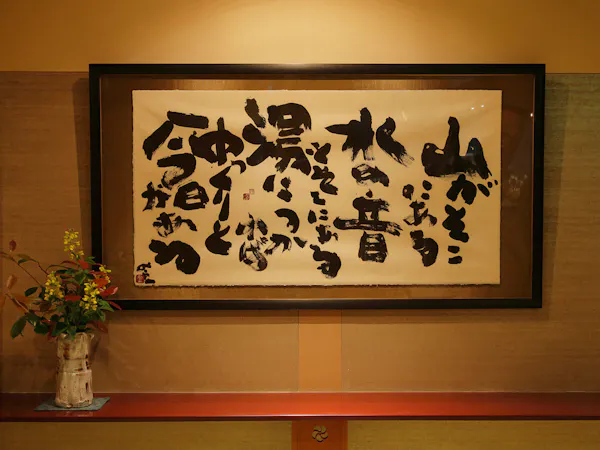 山がそこ
にある
水の音
がそこにある
湯につか
れば
ゆっくりと
今日がある